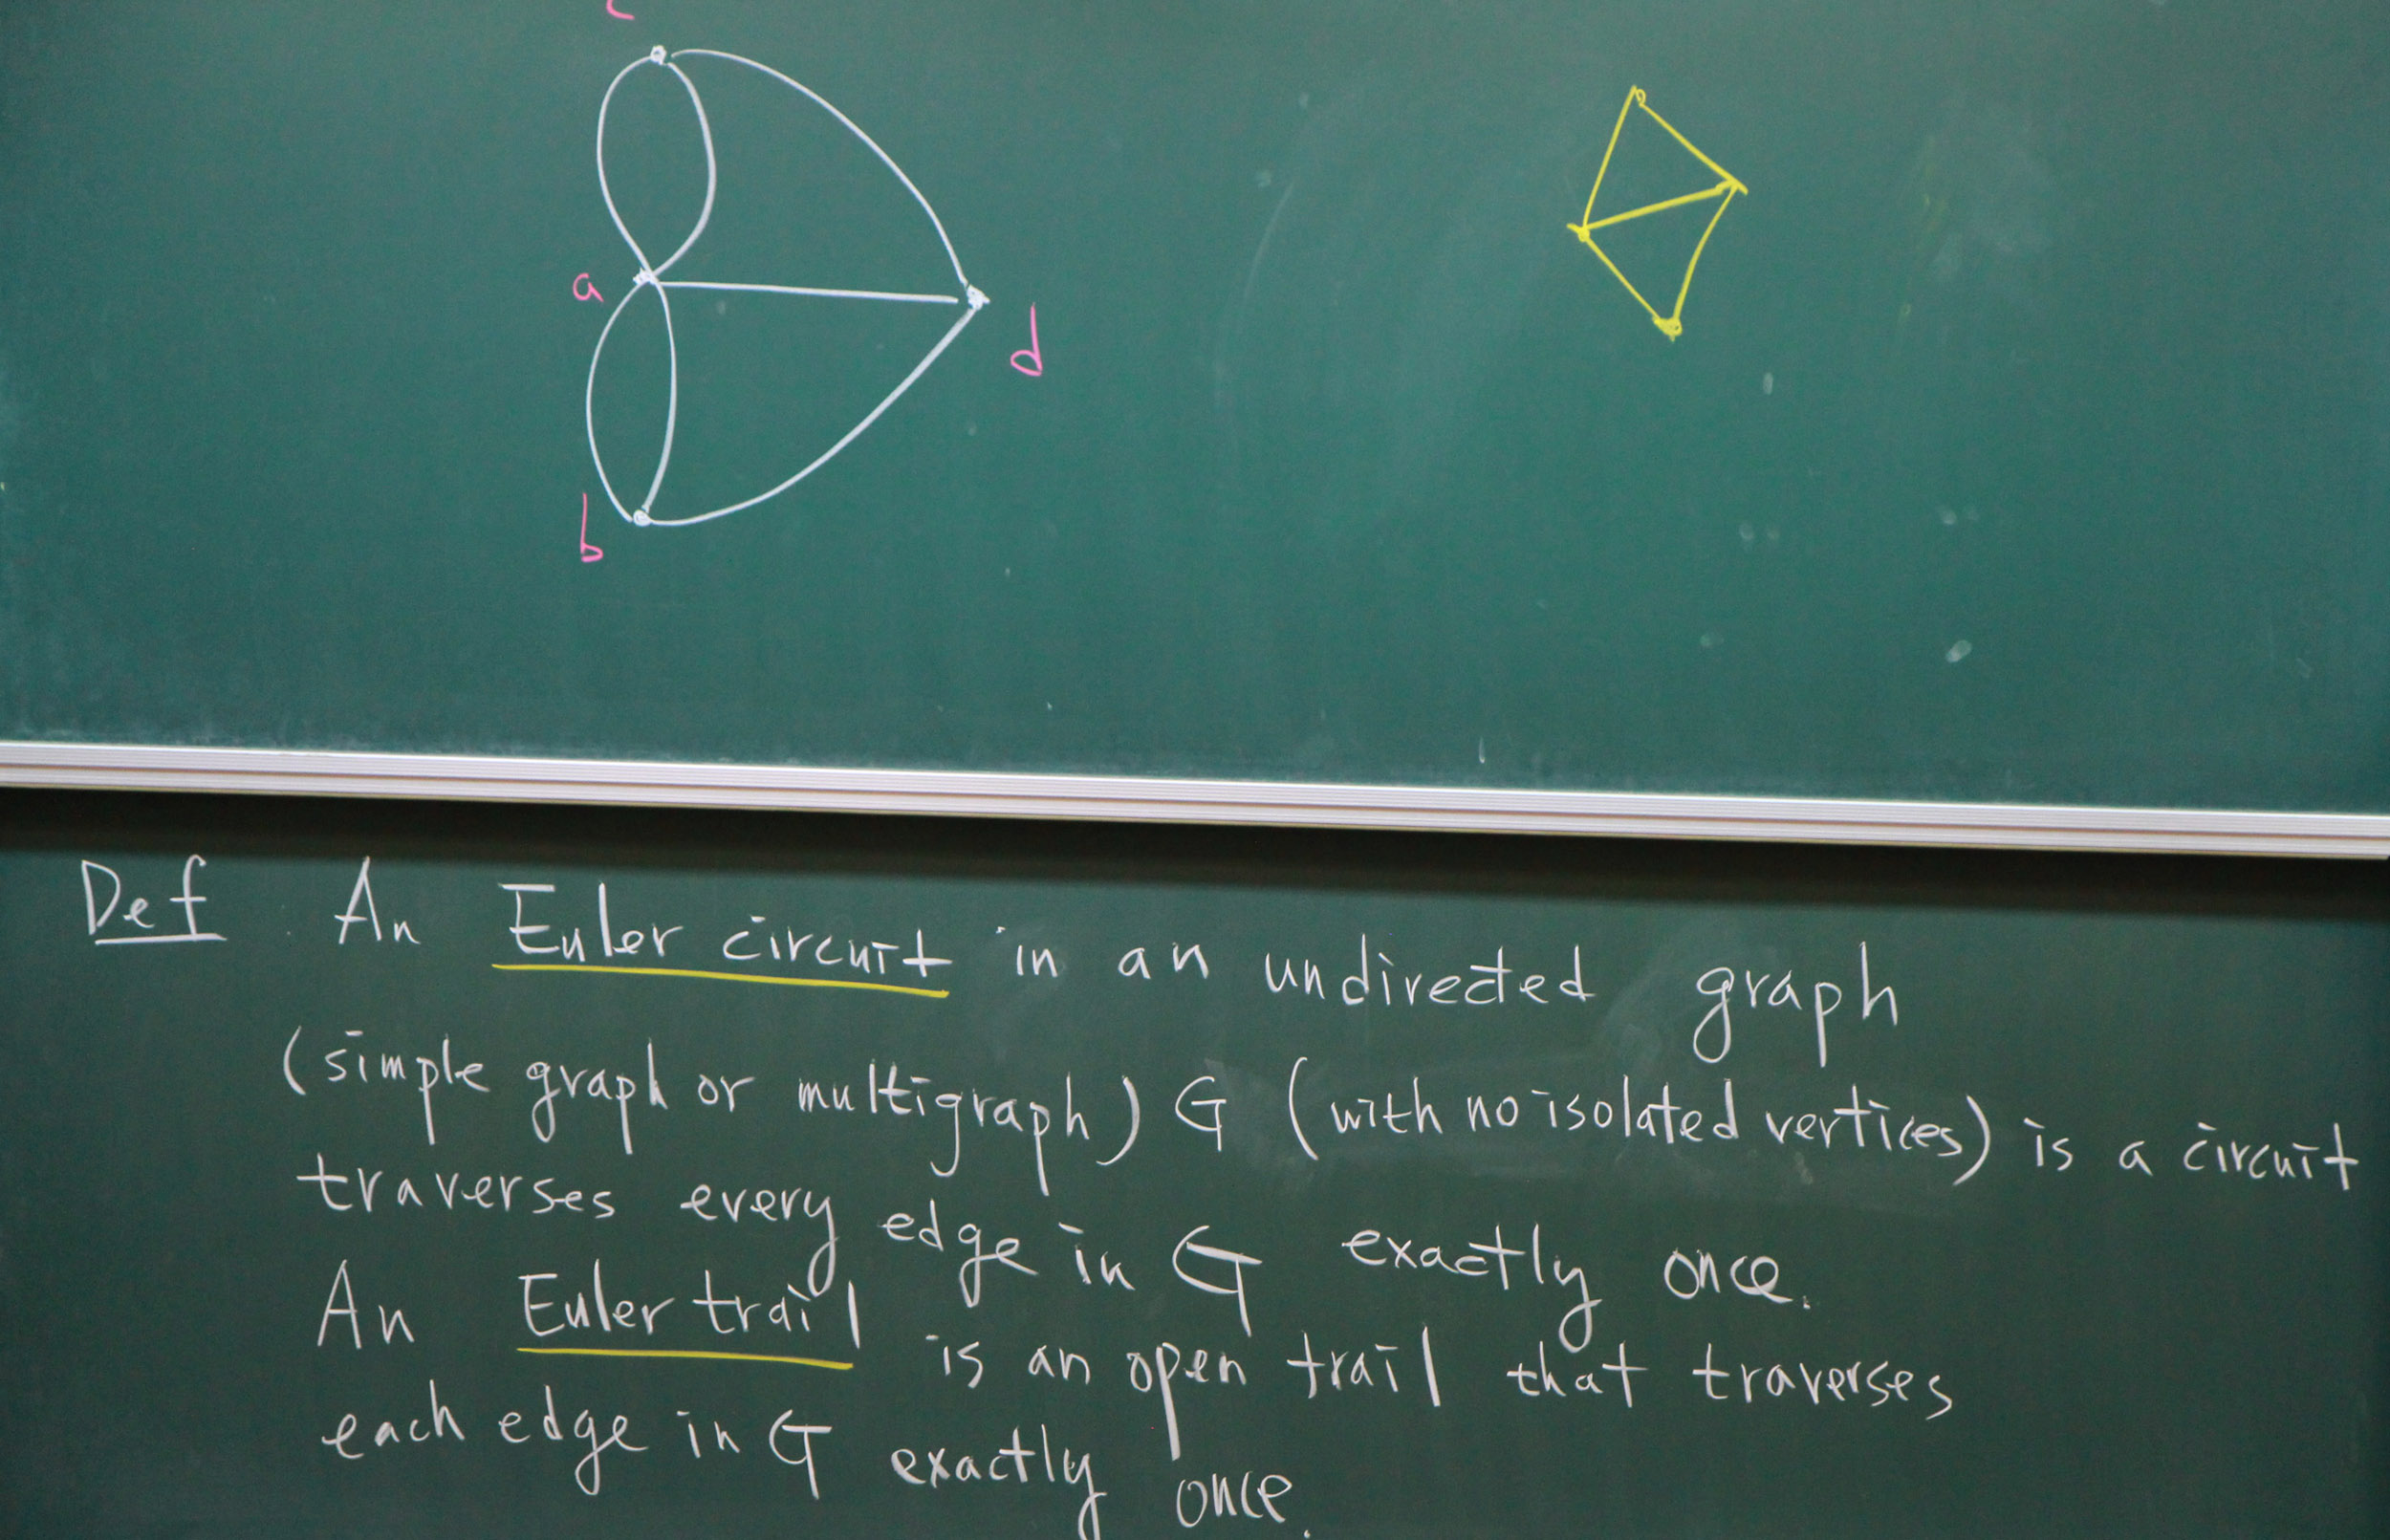 c
a
d
b
Def. An Euler circuit in an undirected graph
(simple graph or multigraph) G (with no isolated vertices) is a circuit
traverses every edge in G exactly once.
An Euler trail is an open trail that traverses
each edge in G exactly once.